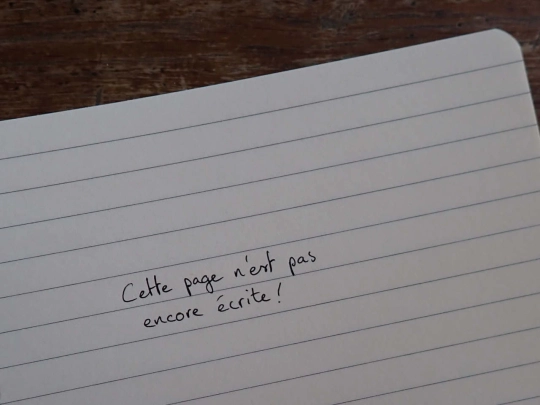 Cette page n'est pas
encore écrite!